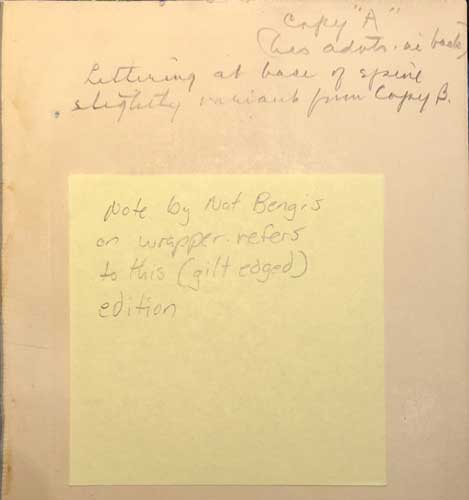 Copy "A"
(has advts. in back)
Lettering at base of spine
slightly variant from Copy B.
Note by Nat Bengis
on wrapper refers
to this (gilt edged)
edition